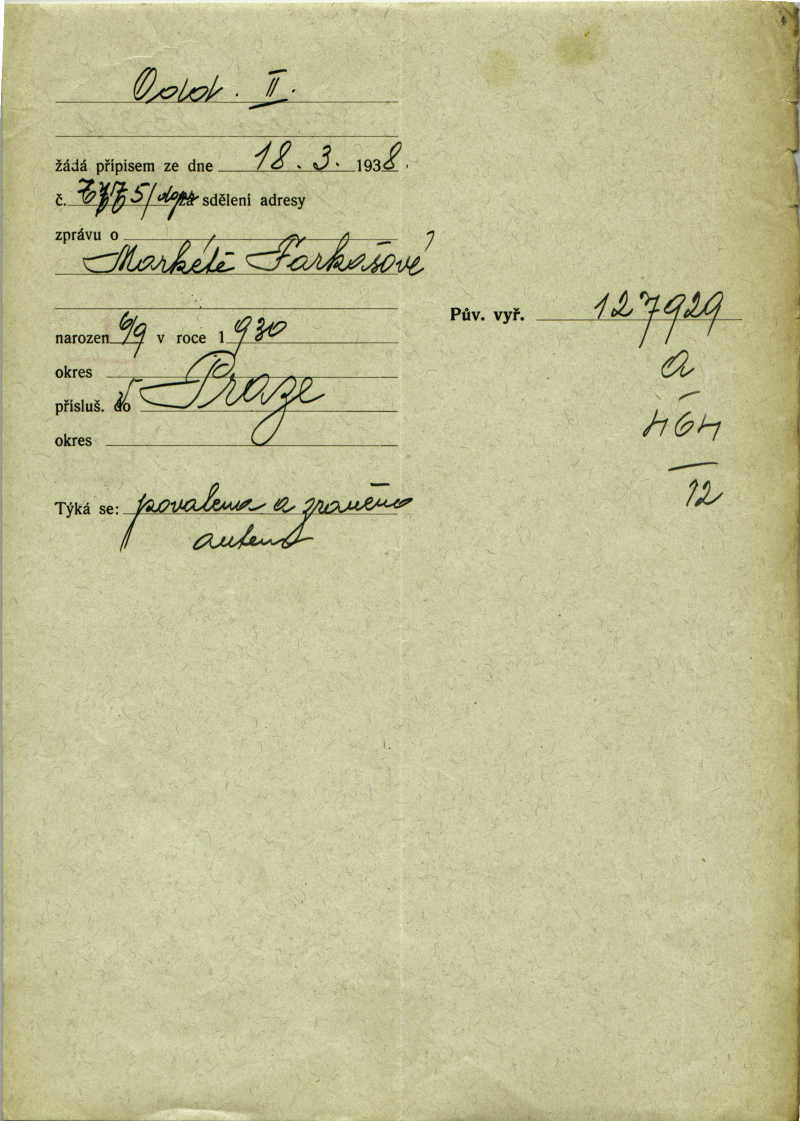 Odd. II.
žádá přípisem ze dne 18. 3. 1938.
č. 7775/dopr za sdělení adresy
zprávu o
Markétě Farkašové
narozen 6/9 v roce 1930
okres
přísluš. do Praze
okres
Týká se: povalena a zraněna
autem
Pův. vyř. 127929
a
464
12